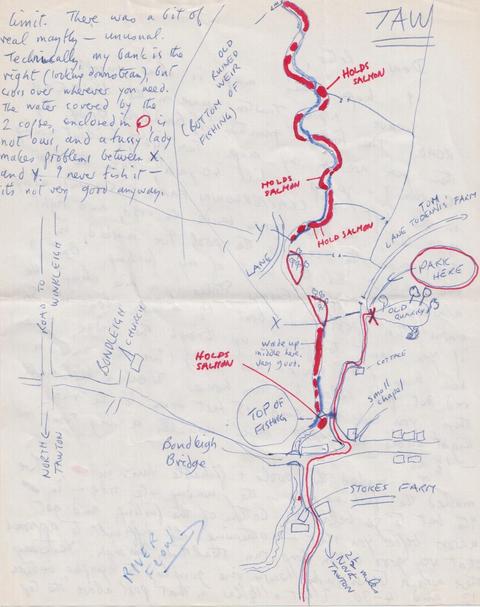 limit. There was a bit of
real mayfly – unusual.
Technically, my bank is the
right (looking downstream), but
cross over wherever you need.
The water covered by the
2 copses, enclosed in O, is
not ours, and a fussy lady
makes problems between X
and Y. I never fish it –
its not very good anyway.
TAW
OLD
RUINED
WEIR
(BOTTOM OF
FISHING)
HOLDS
SALMON
HOLDS
SALMON
HOLD SALMON
Y
LANE
TOM
LANE TO DENNIS' FARM
PARK
HERE
OLD
QUARRY
X
X
Wade up
middle here.
Very good.
COTTAGE
HOLDS
SALMON
small
chapel
TOP OF
FISHING
ROAD TO
WINKLEIGH
BONDLEIGH
CHURCH
NORTH
TAWTON
Bondleigh
Bridge
STOKES FARM
RIVER
FLOW
2½ miles
NORTH
TAWTON